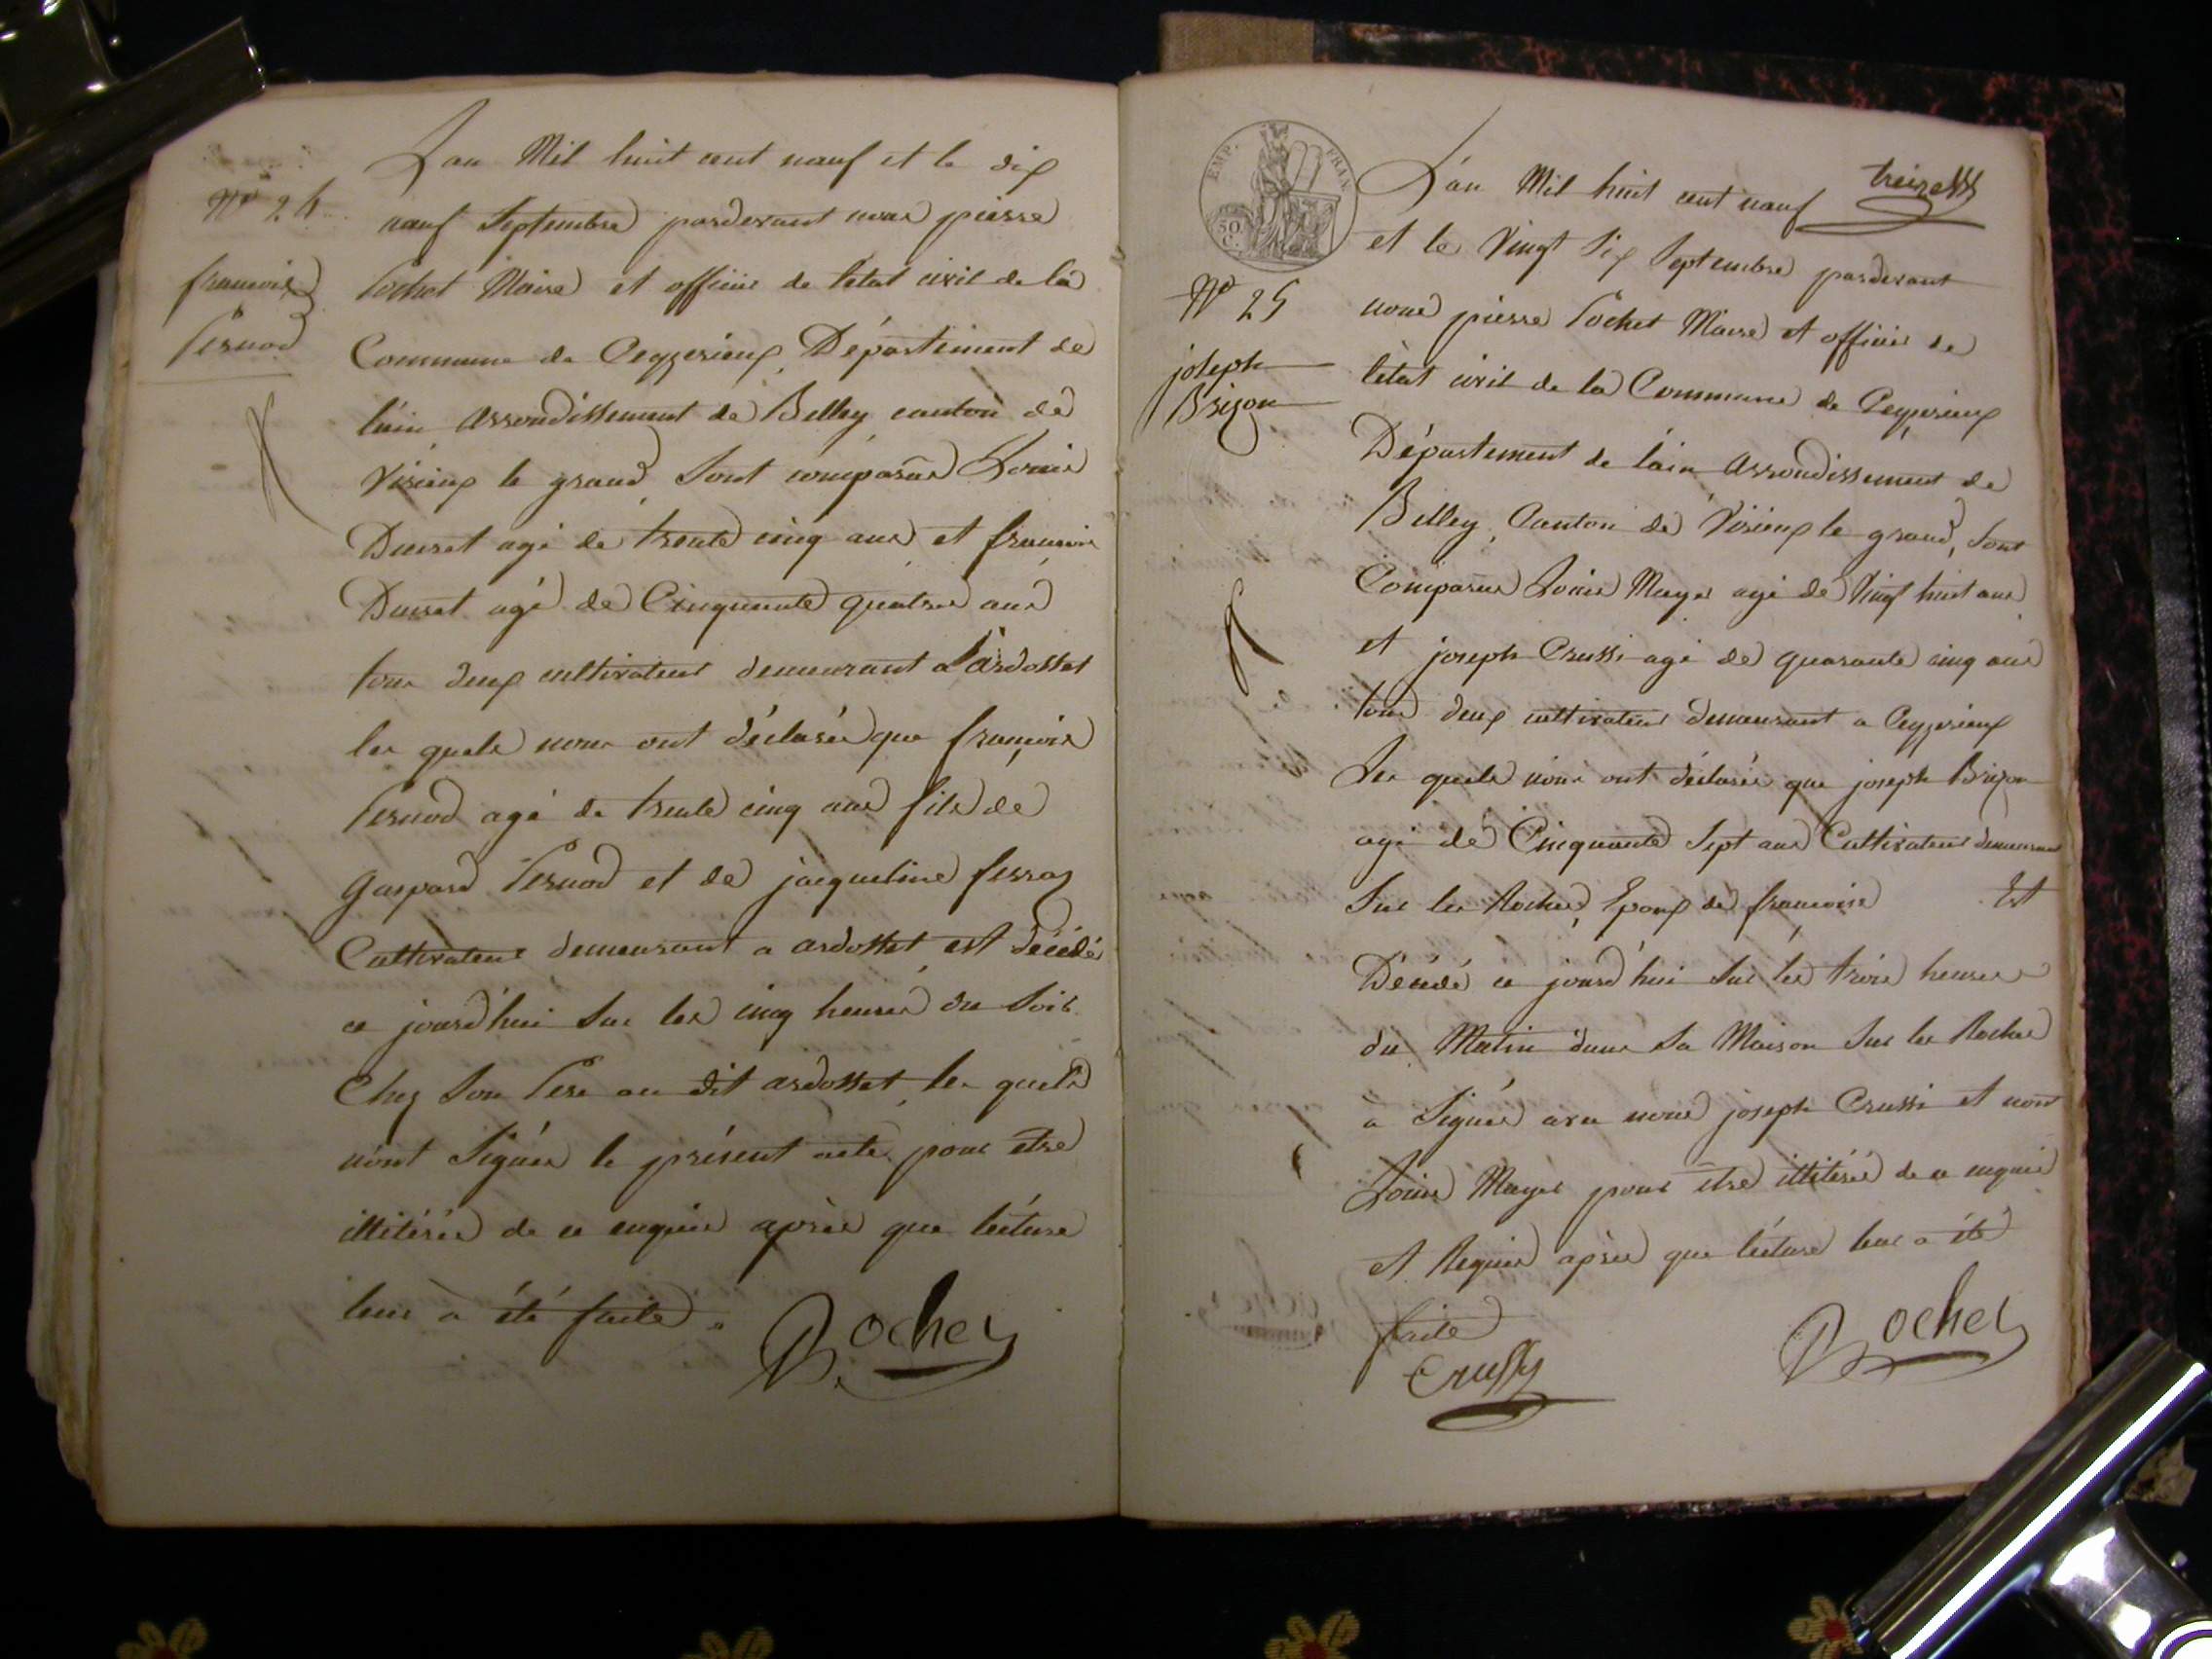 Lan Mil huit cent neuf et le dix
neuf Septembre pardevant nous pierre
Pochet Maire et officier de letat civil de la
Commune de Ceyzerieux, Département de
l'ain arrondissement de Belley canton de
Virieux le grand, Sont comparus Louis
Ducret agé de trente cinq ans et françois
Ducret agé de Cinquante quatre ans
tous deux cultivateur demeurant a Lardosset
les quels nous ont déclarés que françois
Pernod agé de trente cinq ans fils de
Gaspard Pernod et de jacqueline ferraz
Cultivateur demeurant a ardosset, est décédé
ce jourd'hui Sur les cinq heures du Soir
Chez Son Pere au dit ardosset, les quels
n'ont Signés le présent acte pour être
illitérés de ce enquis après que lécture
leur à été faite.
Pochet
Nº 24
françois
Pernod
EMP. FRAN.
50
C.
treize
L'an Mil huit cent neuf
et le Vingt Six Septembre pardevant
nous pierre Pochet Maire et officier de
létat civil de la Commune de Ceyzerieux
Département de l'ain arrondissement de
Belley, Canton de Virieux le grand, Sont
Comparus Louis Mayer agé de Vingt huit ans
et joseph Crussi agé de quarante cinq ans
tous deux cultivateur demeurant a Ceyzerieux
Les quels nous ont déclarés que joseph Brizon
agé de Cinquante Sept ans Cultivateur demeurant
Sur les Roches, Epoux de françoise Est
Décédé ce jourd'hui Sur les trois heures
du Matin dans Sa Maison Sur les Roches
à Signés avec nous joseph Crussi et non
Louis Mayer pour être illitérés de ce enquis
et Requis après que lécture leur a été
faite
Crussy
Pochet
Nº 25
joseph
Brizon